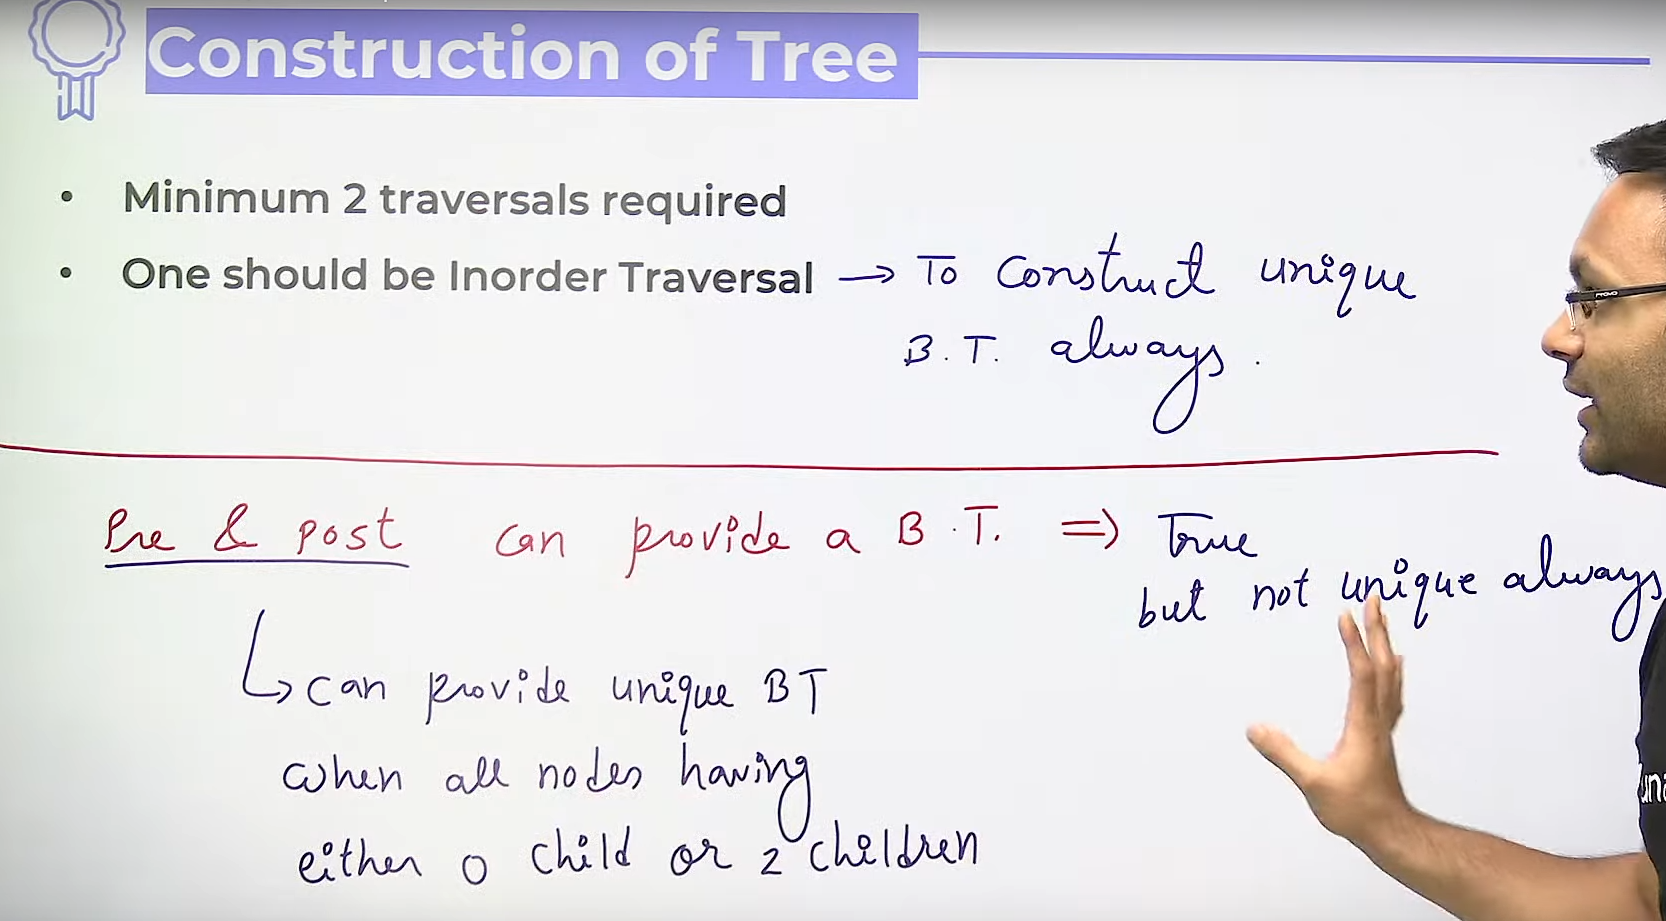 Construction of Tree
• Minimum 2 traversals required
• One should be Inorder Traversal → To Construct unique
B.T. always.
Pre & post can provide a B.T. ⇒ True
but not unique always
↳ can provide unique BT
when all nodes having
either 0 child or 2 children